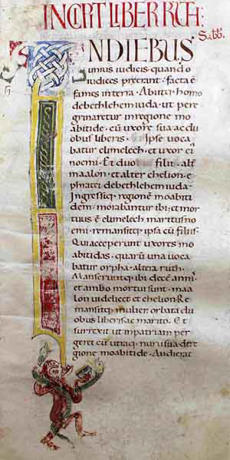 INCIPT LIBER RUTH:
Sabb.
IN DIEBUS
unius iudicis· quando
iudices preerant· facta ē
fames in terra· Abiitq; homo
de bethleem iuda· ut pere
grinaretur in regione mo
abitide· cū uxore sua ac du
obus liberis· Ipse uoca
batur elimelech· et uxor ei
noemi· Et duo filii· alt
maalon· et alter chelion· e
phratei de bethleem iuda·
Ingressiq; regionē moabiti
dem· morabantur ibi· et mor
tuus ē elimelech maritus no
emi· remansitq; ipsa cū filiis·
Qui acceperunt uxores mo
abitidas· quarū una uoca
batur orpha· altera ruth·
Manseruntq; ibi decē anni
et ambo mortui sunt· ma
alon uidelicet et chelion Re
mansitq; mulier orbata du
obus liberis ac marito· Et
surrexit ut in patriam per
geret cū utraq; nuru sua de re
gione moabitide· Audierat